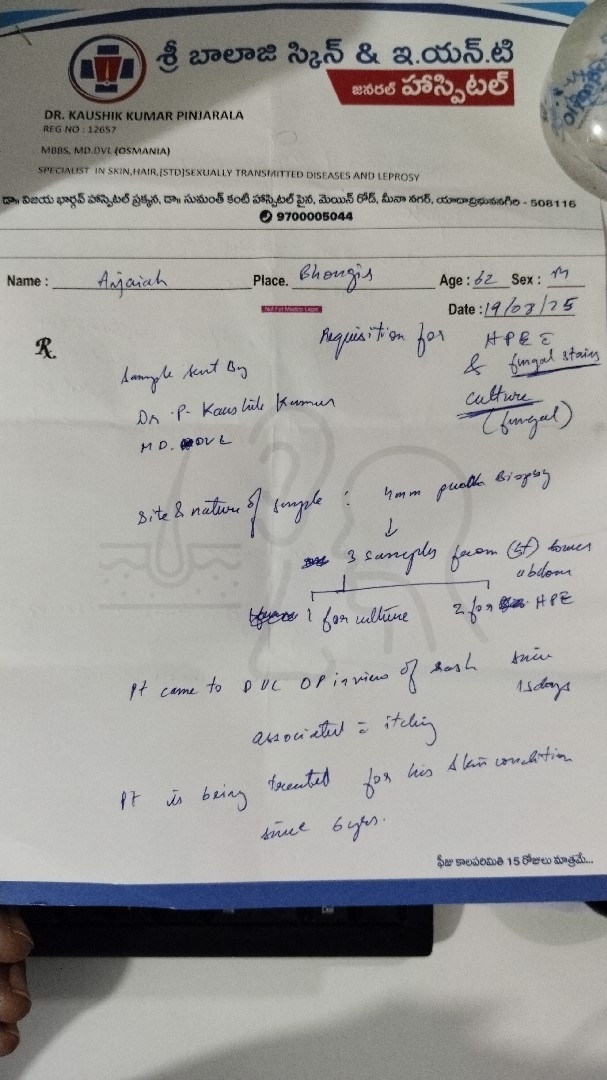 శ్రీ బాలాజి స్కిన్ & ఇ.యన్.టి
జనరల్ హాస్పిటల్
DR. KAUSHIK KUMAR PINJARALA
REG NO : 12657
MBBS, MD.DVL (OSMANIA)
SPECIALIST IN SKIN,HAIR,[STD]SEXUALLY TRANSMITTED DISEASES AND LEPROSY
డా॥ విజయ భార్గవ్ హాస్పిటల్ ప్రక్కన, డా॥ సుమంత్ కంటి హాస్పిటల్ పైన, మెయిన్ రోడ్, మీనా నగర్, యాదాద్రిభువనగిరి - 508116
9700005044
Name : Anjaiah Place. Bhongir Age : 62 Sex : M
Not For Medico Legal
Date : 19/03/25
Rx
Requisition for HPE
& fungal stains
culture
(fungal)
Sample sent By
Dr. P. Kaushik Kumar
MD. DVL
Site & nature of sample : 4mm punch Biopsy
↓
3 samples from (Lt) lower
abdom
1 for culture 2 for HPE
Pt came to DVL OP in view of rash since
15days
associated = itching
Pt is being treated for his skin condition
since 6yrs.
ఫీజు కాలపరిమితి 15 రోజులు మాత్రమే...